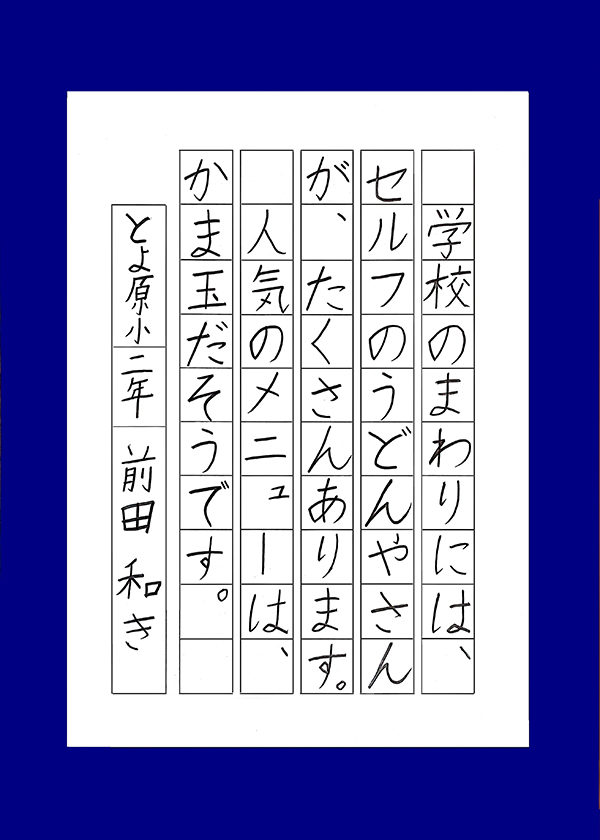 学校のまわりには、
セルフのうどんやさん
が、たくさんあります。
人気のメニューは、
かま玉だそうです。
とよ原小二年 前田和き